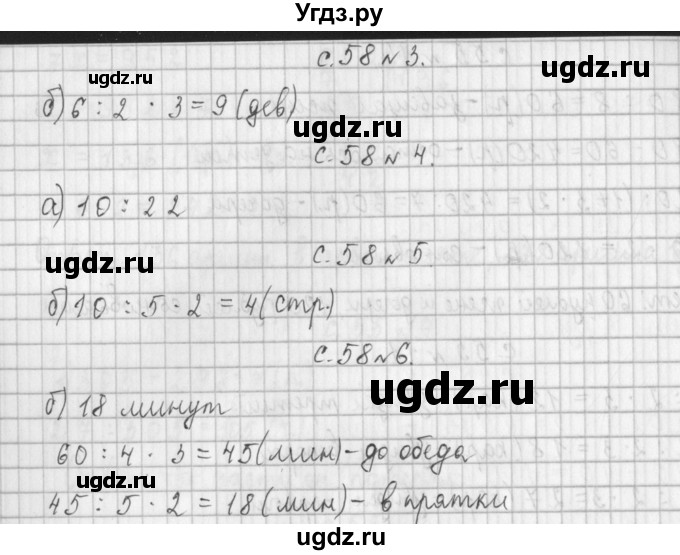 Угдз.ру
с. 58 N 3.
б) 6 : 2 · 3 = 9 (дев)
с. 58 N 4.
а) 10 : 22
с. 58 N 5.
б) 10 : 5 · 2 = 4 (стр.)
с. 58 N 6.
б) 18 минут
60 : 4 · 3 = 45 (мин) - до обеда
45 : 5 · 2 = 18 (мин) - в прятки
ugdz.ru
ugdz.ru
ugdz.ru
ugdz.ru
ugdz.ru
ugdz.ru
ugdz.ru
ugdz.ru